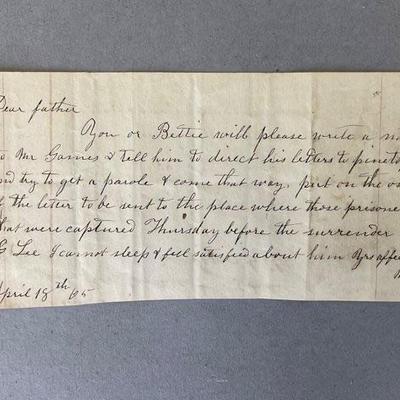 Dear father
You or Bettie will please write a
to Mr Games & tell him to direct his letters to
and try to get a parole & come that way, put on the
of the letter to be sent to the place where those prisone
that were captured Thursday before the surrender
G Lee I cannot sleep & feel satisfied about him Yrs affe
April 18th 65